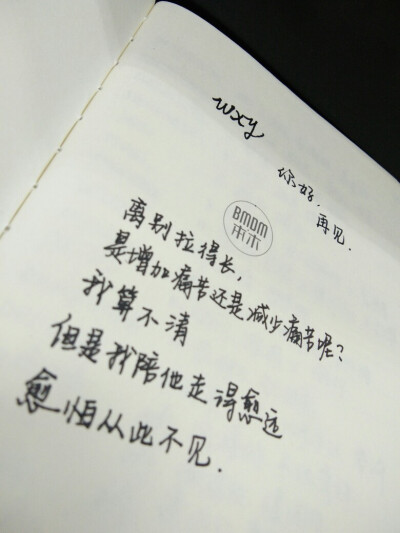 wxy
你好.
再见.
BMDM
本木
离别拉得长,
是增加痛苦还是减少痛苦呢?
我算不清
但是我陪他走得愈远
愈怕从此不见.